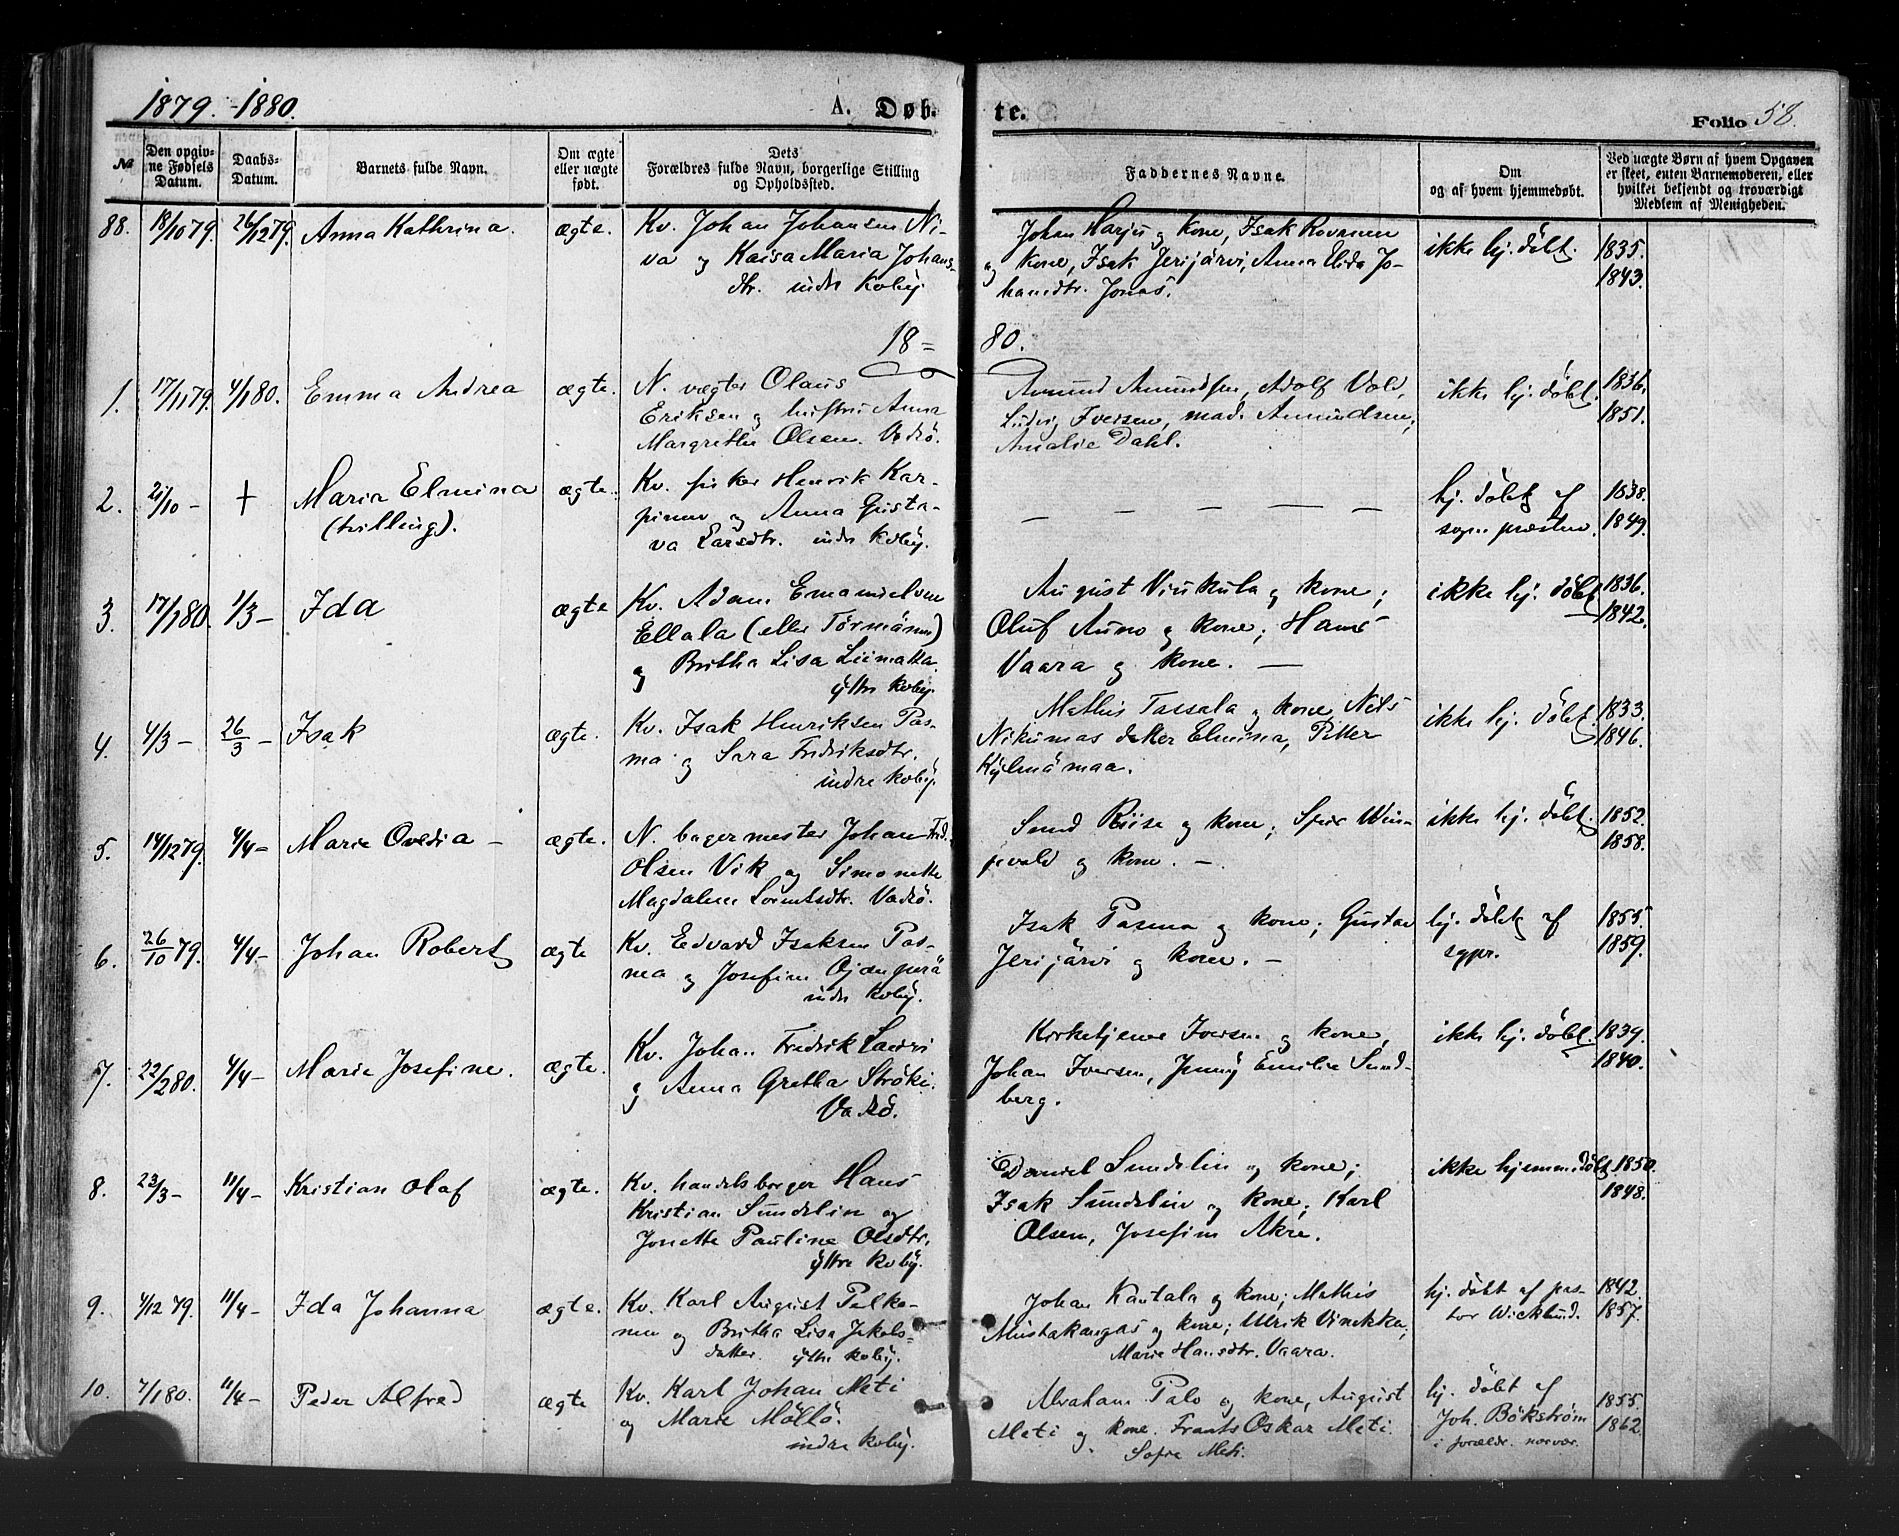 1879.-1880. A. Døb- te. Folio 58.
№ Den opgivne Fødsels Datum. Daabs-Datum. Barnets fulde Navn. Om ægte eller uægte født. Dets Forældres fulde Navn, borgerlige Stilling og Opholdssted. Faddernes Navne. Om og af hvem hjemmedøbt. Ved uægte Børn af hvem Opgaven er skeet, enten Barnemoderen, eller hvilket bekjendt og troværdigt Medlem af Menigheden.
88. 18/10 79. 26/12 79. Anna Kathrina. ægte. Kv. Johan Johansen Ni- Johan Harju og kone, Isak Rovanen ikke hj. døbt. 1835.
va og Kaisa Maria Johans- og kone, Isak Jerijärvi, Anna Elida Jo- 1843.
dtr. indre Kvby. handtr. Jonas.
18= 80.
1. 17/11 79. 4/1 80. Emma Andrea ægte. N. vægter Olaus Amund Amundsen, Adolf Vold, ikke hj. døbt. 1836.
Eriksen og hustru Anna Ludvig Iversen, mad. Amundsen, 1851.
Margrethe Olsen. Vadsö. Amalie Dahl.
2. 21/10 - + Maria Elmina ægte. Kv. fisker Henrik Kar- — — — — — hj. døbt af 1838.
(tvilling). pinen og Anna Gusta- sogneprästen. 1849.
va Larsdtr. indre Kvby.
3. 17/1 80. 1/3 - Ida ægte Kv. Adam Emanuelsen August Viinikula og kone; ikke hj. döbt 1836.
Ellala (eller Törmänen) Oluf Auno og kone; Hans 1842.
og Britha Lisa Liimatta. Vaara og kone. —
ytre kvby.
4. 4/3 - 26/3 - Isak ægte. Kv. Isak Henriksen Pas- Mathis Tassala og kone, Nils ikke hj. döbt. 1833.
ma og Sara Fredriksdtr. Nikumas datter Elmina, Petter 1846.
indre kvby. Kylmämaa.
5. 14/12 79. 4/4 - Marie Ovedia - ægte. N. bagermester Johan Fred. Riise og kone; ikke hj. döbt. 1852.
Olsen Vik og Simonette og kone. — 1858.
Magdalena Lorentsdtr. Vadsö.
6. 26/10 79. 4/4 - Johan Robert ægte Kv. Edvard Isaksen Pas- Isak Pasma og kone; Gustav hj. döbt af 1855.
ma og Josefine Ojanperä Jerijärvi og kone. — sgpr. 1859.
indre kvby.
7. 22/2 80. 4/4 - Marie Josefine. ægte. Kv. Johan Fredrik Lauri Kirketjener Iversen og kone, ikke hj. döbt. 1839.
og Anna Gretha Ströki. Johan Iversen, Jenny Emilie Sund- 1840.
Vadsö. berg.
8. 23/3 - 11/4 - Kristian Olaf ægte. Kv. handelsborger Hans Daniel Sundelin og kone; ikke hjemmedöbt 1850.
Kristian Sundelin og Isak Sundelin og kone; Karl 1848.
Jonette Pauline Olsdtr. Olsen, Josefine Akre.
ytre kvby.
9. 4/12 79. 11/4 - Ida Johanna ægte. Kv. Karl August Pelko- Johan Kantala og kone; Mathis hj. döbt af pas- 1842.
nen og Britha Lisa Jakobs- Mustakangas og kone; Ulrik Vinikka; tor Wicklund. 1857.
datter. ytre kvby. Marie Hansdtr. Vaara.
10. 7/1 80. 11/4 - Peder Alfred ægte Kv. Karl Johan Meti Abraham Palo og kone, August hj. döbt af 1855.
og Marie Möllö. Meti og kone. Frants Oskar Meti. Joh. Bökström 1862.
indre kvby. Sofie Meti. i forældr. nærvær.